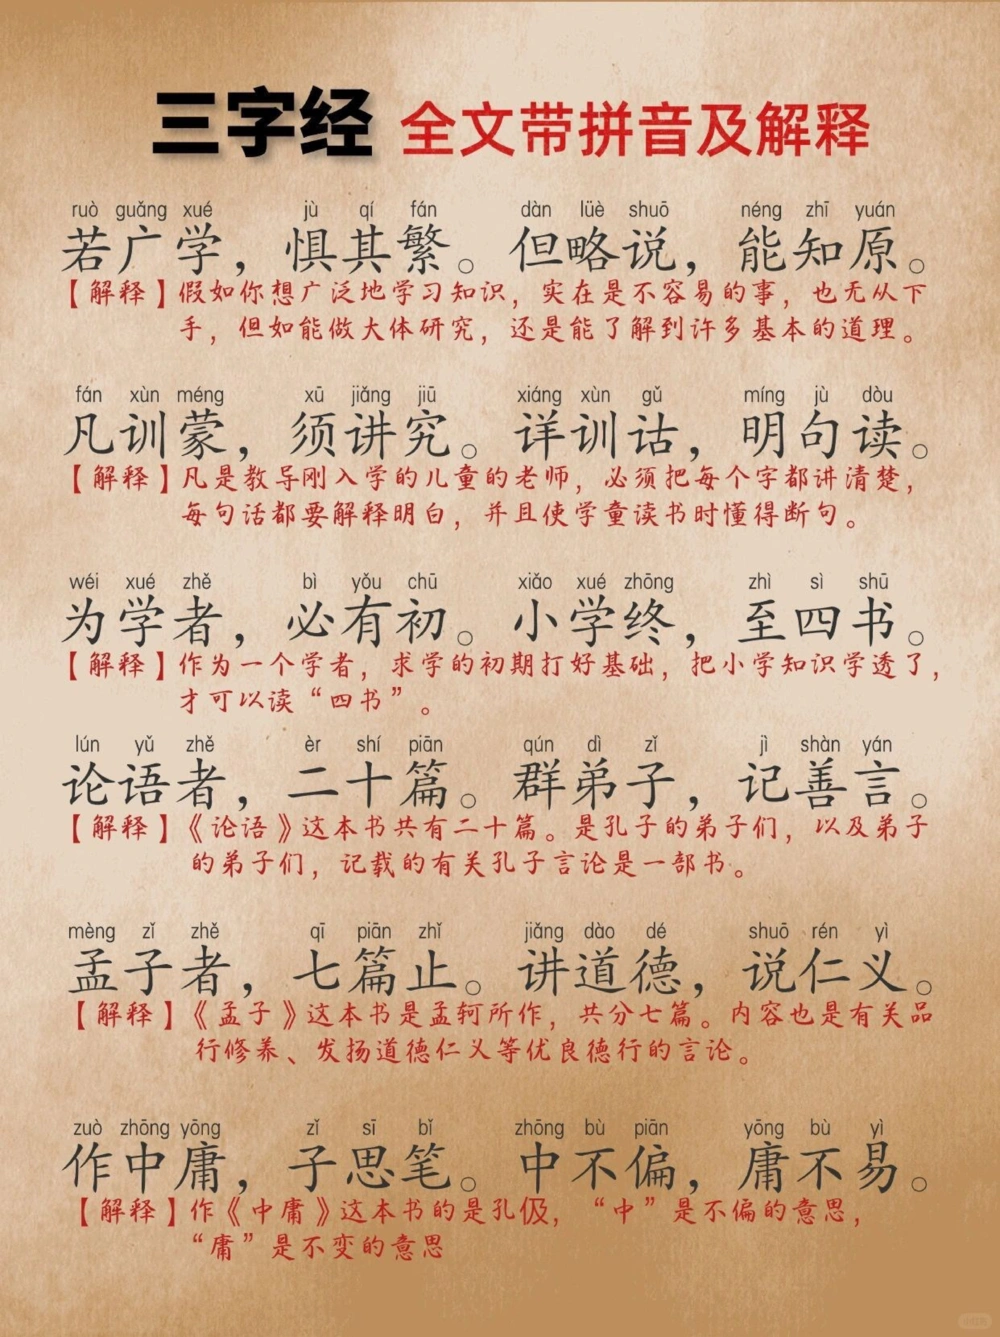 三字经 全文带拼音及解释
ruò guǎng xué jù qí fán dàn lüè shuō néng zhī yuán
若广学，惧其繁。但略说，能知原。
【解释】假如你想广泛地学习知识，实在是不容易的事，也无从下
手，但如能做大体研究，还是能了解到许多基本的道理。
fán xùn méng xū jiǎng jiū xiáng xùn gǔ míng jù dòu
凡训蒙，须讲究。详训诂，明句读。
【解释】凡是教导刚入学的儿童的老师，必须把每个字都讲清楚，
每句话都要解释明白，并且使学童读书时懂得断句。
wéi xué zhě bì yǒu chū xiǎo xué zhōng zhì sì shū
为学者，必有初。小学终，至四书。
【解释】作为一个学者，求学的初期打好基础，把小学知识学透了，
才可以读“四书”。
lún yǔ zhě èr shí piān qún dì zǐ jì shàn yán
论语者，二十篇。群弟子，记善言。
【解释】《论语》这本书共有二十篇。是孔子的弟子们，以及弟子
的弟子们，记载的有关孔子言论是一部书。
mèng zǐ zhě qī piān zhǐ jiǎng dào dé shuō rén yì
孟子者，七篇止。讲道德，说仁义。
【解释】《孟子》这本书是孟轲所作，共分七篇。内容也是有关品
行修养、发扬道德仁义等优良德行的言论。
zuò zhōng yōng zǐ sī bǐ zhōng bù piān yōng bù yì
作中庸，子思笔。中不偏，庸不易。
【解释】作《中庸》这本书的是孔伋，“中”是不偏的意思，
“庸”是不变的意思